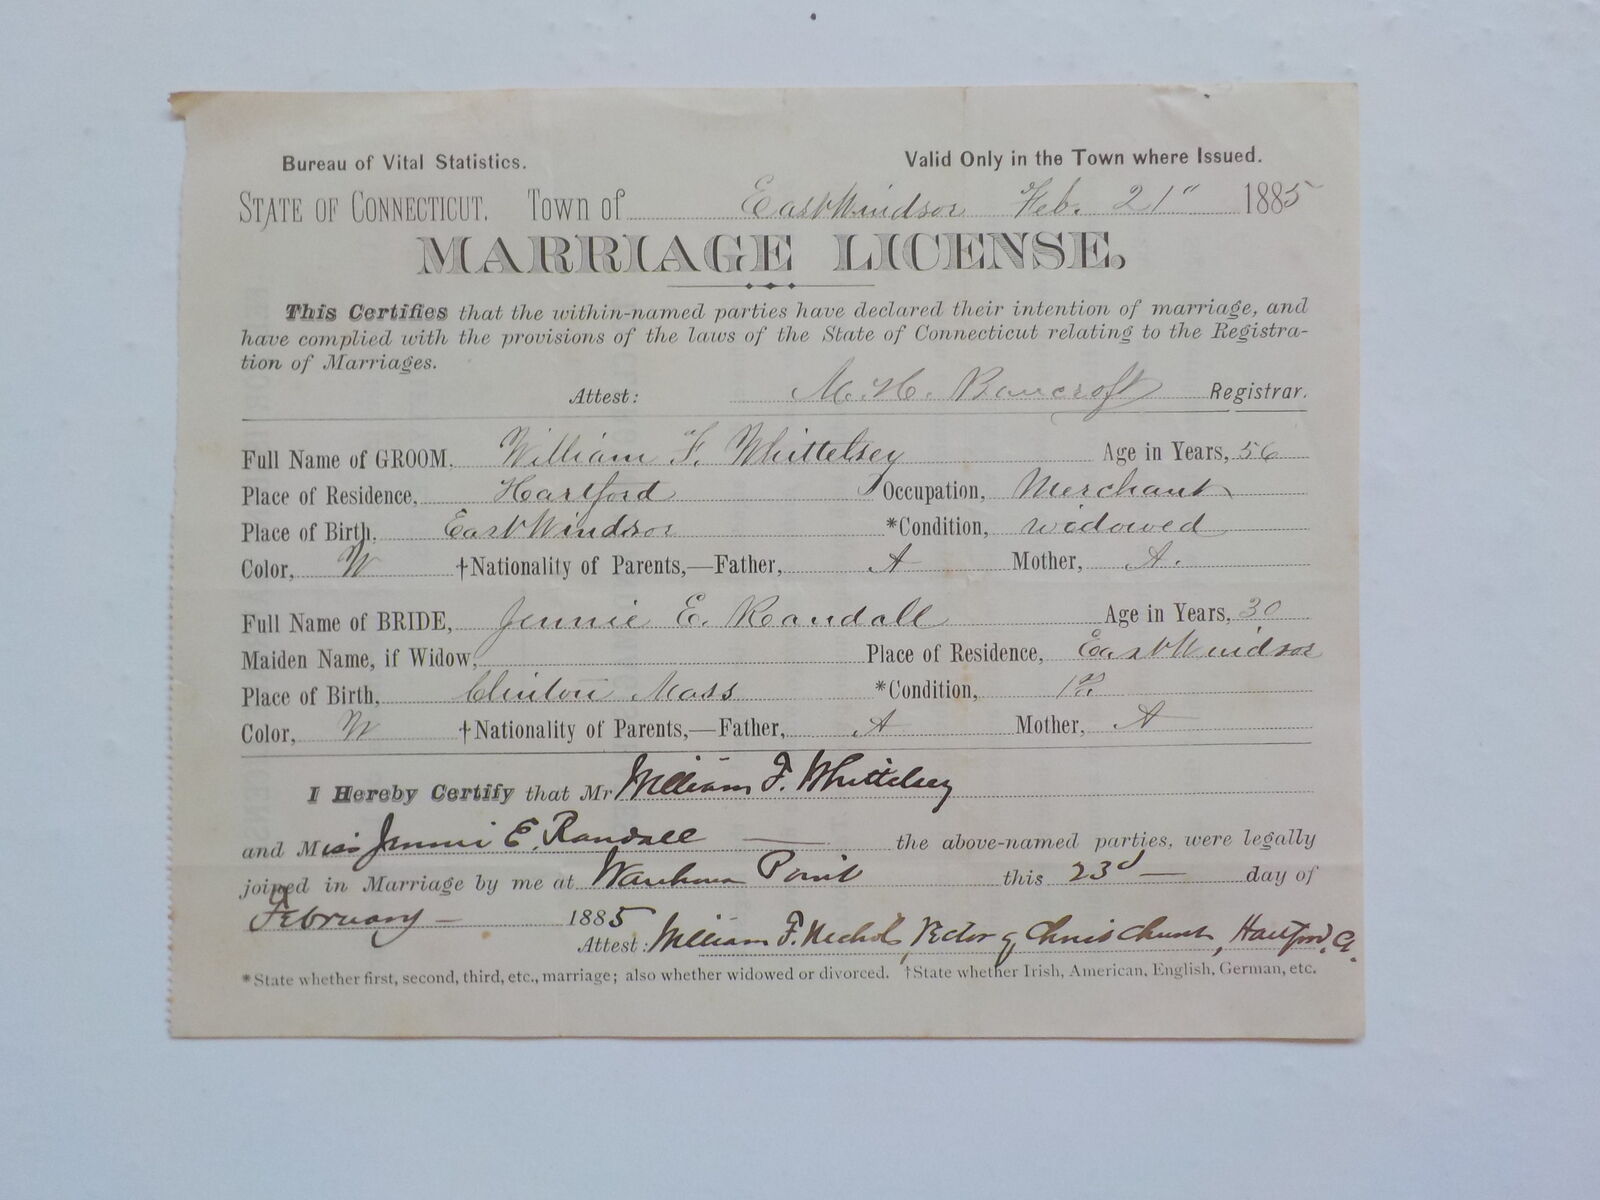 Bureau of Vital Statistics. Valid Only in the Town where Issued.
STATE OF CONNECTICUT. Town of East Windsor Feb. 21" 1885
MARRIAGE LICENSE.
This Certifies that the within-named parties have declared their intention of marriage, and
have complied with the provisions of the laws of the State of Connecticut relating to the Registra-
tion of Marriages.
Attest: M. H. Bancroft Registrar.
Full Name of GROOM, William F. Whittelsey Age in Years, 56
Place of Residence, Hartford Occupation, Merchant
Place of Birth, East Windsor *Condition, Widowed
Color, W †Nationality of Parents,—Father, A Mother, A.
Full Name of BRIDE, Jennie E. Randall Age in Years, 30
Maiden Name, if Widow, Place of Residence, East Windsor
Place of Birth, Clinton Mass *Condition, 1st
Color, W †Nationality of Parents,—Father, A Mother, A
I Hereby Certify that Mr William F. Whittelsey
and Miss Jennie E. Randall — the above-named parties, were legally
joined in Marriage by me at Warehouse Point this 23d — day of
February — 1885
Attest: William F. Nichols, Rector of Christ Church, Hartford, Ct.
*State whether first, second, third, etc., marriage; also whether widowed or divorced. †State whether Irish, American, English, German, etc.